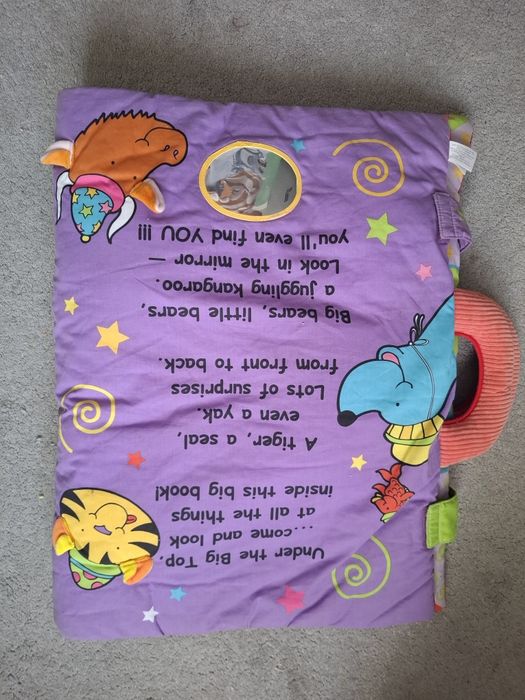 Under the Big Top,
...come and look
at all the things
inside this big book!
A tiger, a seal,
even a yak.
Lots of surprises
from front to back.
Big bears, little bears,
a juggling kangaroo.
Look in the mirror —
you'll even find YOU !!!